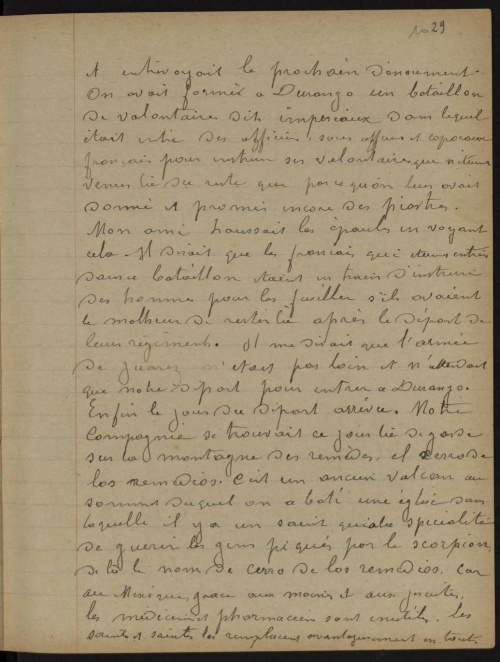 29
et entrevoyait le prochain dénoument.
On avait formé a Durango un bataillon
de volontaires dits imperiaux dans lequel
était entré des officiers, sous officiers et caporaux
français pour instruire ses volontaires que n'etaient
venus là du reste que parce qu'on leur avait
donné et promis encore des piastres.
Mon ami haussait les épaules en voyant
cela. Il disait que les français qui etaient entrés
dans ce bataillon etaient en train d'instruire
des hommes pour les fusiller s'ils avaient
le malheur de rester là après le départ de
leurs régiments. Il me disait que l'armée
de Juarez n'etait pas loin et n'attendait
que notre départ pour entrer a Durango.
Enfin le jour du départ arriva. Notre
Compagnie se trouvait ce jour là de garde
sur la montagne des remèdes, el cerro de
los remedios. C'est un ancien volcan au
sommet duquel on a bati une église dans
laquelle il y a un saint qui a la specialité
de guerir les gens piqués par le scorpion,
de là le nom de cerro de los remedios. Car
au Mexique, grace aux moines et aux jesuites,
les medecins et pharmaciens sont inutiles. Les
saints et saintes les remplacent avantageusement en tout.